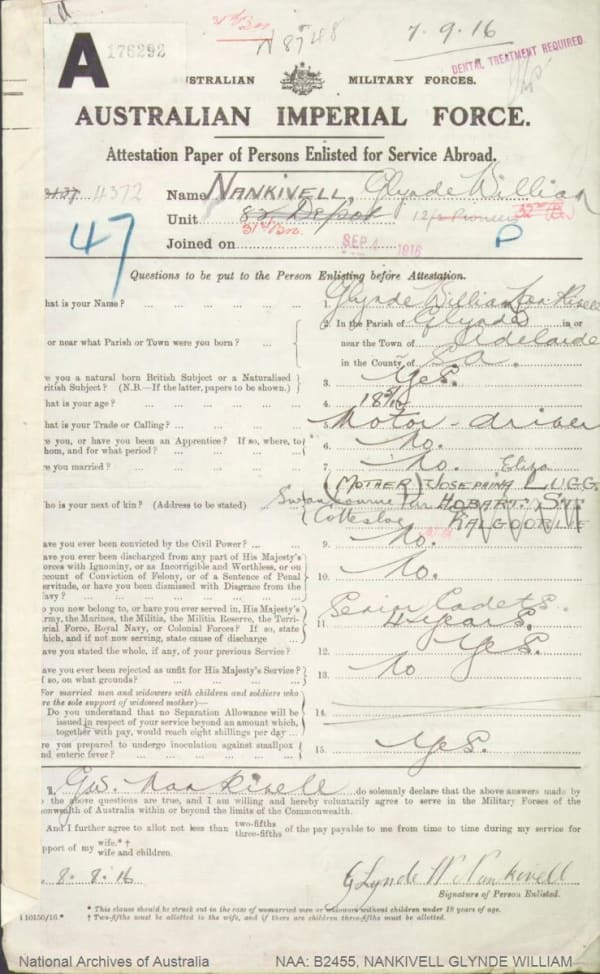 A
176292
31st Bn
N 8748
7.9.16
DENTAL TREATMENT REQUIRED
USTRALIAN MILITARY FORCES.
AUSTRALIAN IMPERIAL FORCE.
Attestation Paper of Persons Enlisted for Service Abroad.
4372 Name NANKIVELL, Glynde William
47
Unit 82 Depot 12/2 Pioneers 32nd Bn
31st Bn.
Joined on SEP 4 1916
P
Questions to be put to the Person Enlisting before Attestation.
hat is your Name? ... 1. Glynde William Nankivell
or near what Parish or Town were you born? ... 2. In the Parish of Glynde in or
near the Town of Adelaide
in the County of S.A.
re you a natural born British Subject or a Naturalised
ritish Subject? (N.B.—If the latter, papers to be shown.) 3. Yes.
hat is your age? ... 4. 18
hat is your Trade or Calling? ... 5. Motor-driver
re you, or have you been an Apprentice? If so, where, to
hom, and for what period? ... 6. No.
re you married? ... 7. No. Eliza
(MOTHER) JOSEPHINA LUGG
ho is your next of kin? (Address to be stated) ... HOBART ST
Cottesloe KALGOORLIE
ave you ever been convicted by the Civil Power? ... 9. No.
ave you ever been discharged from any part of His Majesty's
orces with Ignominy, or as Incorrigible and Worthless, or on
ccount of Conviction of Felony, or of a Sentence of Penal
ervitude, or have you been dismissed with Disgrace from the
avy? ... 10. No.
o you now belong to, or have you ever served in, His Majesty's
rmy, the Marines, the Militia, the Militia Reserve, the Terri-
orial Force, Royal Navy, or Colonial Forces? If so, state
hich, and if not now serving, state cause of discharge ... 11. Senior Cadets.
4 years.
ave you stated the whole, if any, of your previous Service? 12. Yes.
ave you ever been rejected as unfit for His Majesty's Service?
f so, on what grounds? ... 13. No
For married men and widowers with children and soldiers who
re the sole support of widowed mother)—
Do you understand that no Separation Allowance will be
issued in respect of your service beyond an amount which,
together with pay, would reach eight shillings per day ... 14.
re you prepared to undergo inoculation against smallpox
nd enteric fever? ... 15. Yes.
I, G.W. Nankivell do solemnly declare that the above answers made by
o the above questions are true, and I am willing and hereby voluntarily agree to serve in the Military Forces of the
onwealth of Australia within or beyond the limits of the Commonwealth.
And I further agree to allot not less than two-fifths three-fifths of the pay payable to me from time to time during my service for
pport of my wife.* †
wife and children.
8.8.16 Glynde W. Nankivell
Signature of Person Enlisted.
* This clause should be struck out in the case of unmarried men or widowers without children under 18 years of age.
† Two-fifths must be allotted to the wife, and if there are children three-fifths must be allotted.
I 10150/16.*
National Archives of Australia
NAA: B2455, NANKIVELL GLYNDE WILLIAM